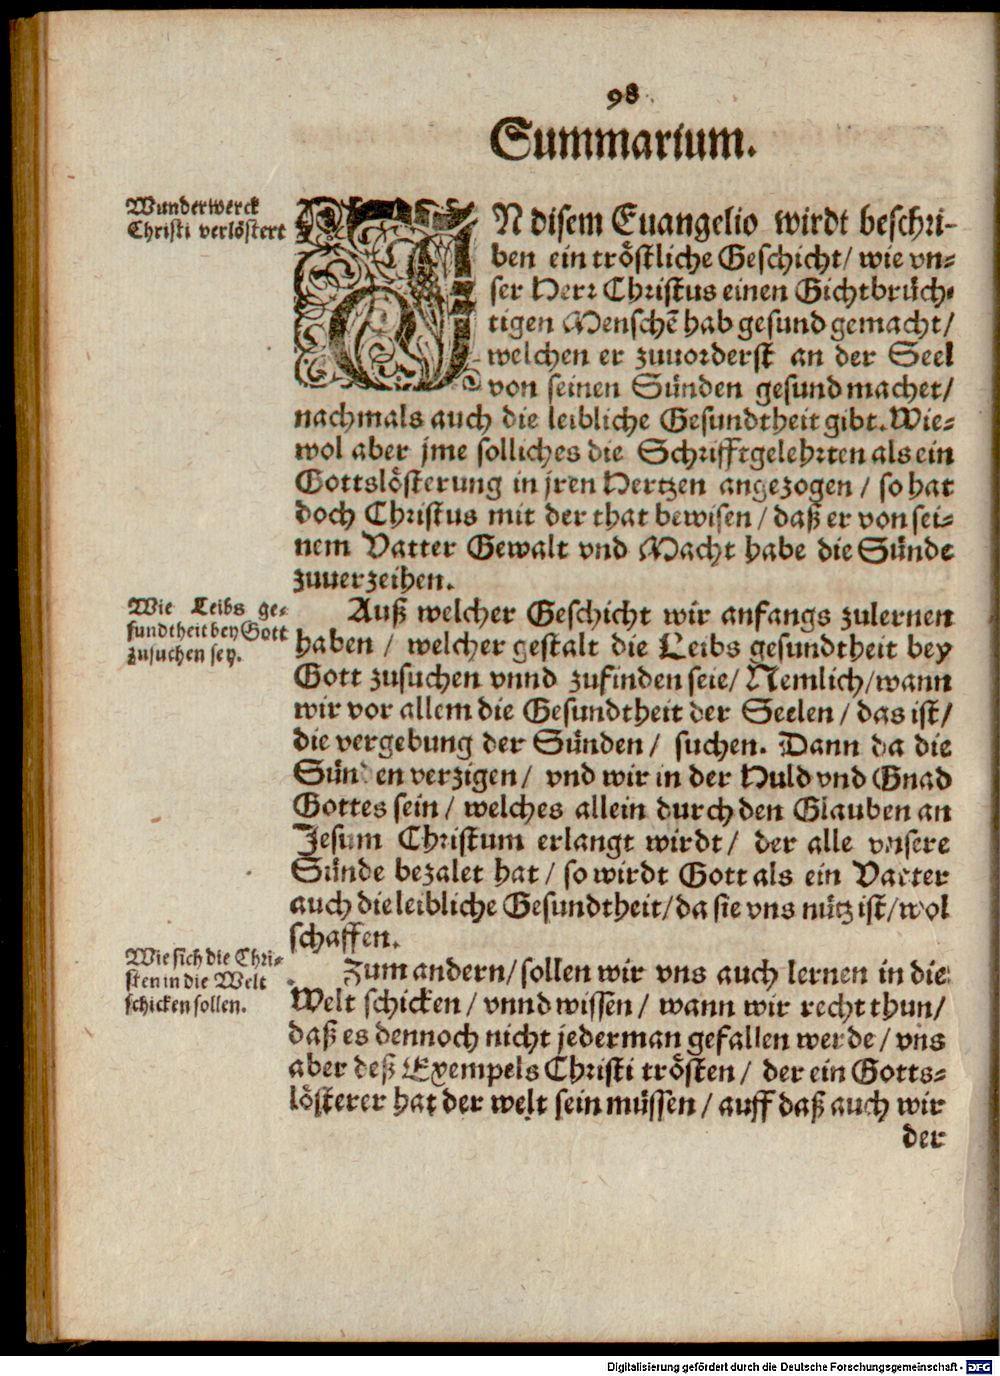 98
Summarium.
Wunderwerck
Christi verlöstert
IN disem Euangelio wirdt beschri-
ben ein tröstliche Geschicht/ wie vn-
ser Herr Christus einen Gichtbrüch-
tigen Menschẽ hab gesund gemacht/
welchen er zuuorderst an der Seel
von seinen Sünden gesund machet/
nachmals auch die leibliche Gesundtheit gibt. Wie-
wol aber jme solliches die Schrifftgelehrten als ein
Gottslösterung in jren Hertzen angezogen / so hat
doch Christus mit der that bewisen / daß er von sei-
nem Vatter Gewalt vnd Macht habe die Sünde
zuuerzeihen.
Wie Leibs ge-
sundtheit bey Gott
zusuchen sey.
Auß welcher Geschicht wir anfangs zulernen
haben / welcher gestalt die Leibs gesundtheit bey
Gott zusuchen vnnd zufinden seie/ Nemlich/ wann
wir vor allem die Gesundtheit der Seelen / das ist/
die vergebung der Sünden / suchen. Dann da die
Sünden verzigen / vnd wir in der Huld vnd Gnad
Gottes sein / welches allein durch den Glauben an
Jesum Christum erlangt wirdt / der alle vnsere
Sünde bezalet hat / so wirdt Gott als ein Vatter
auch die leibliche Gesundtheit/ da sie vns nütz ist/ wol
schaffen.
Wie sich die Chri-
sten in die Welt
schicken sollen.
Zum andern/ sollen wir vns auch lernen in die
Welt schicken / vnnd wissen / wann wir recht thun/
daß es dennoch nicht jederman gefallen werde / vns
aber deß Exempels Christi trösten / der ein Gotts-
lösterer hat der welt sein müssen / auff daß auch wir
der
Digitalisierung gefördert durch die Deutsche Forschungsgemeinschaft - DFG